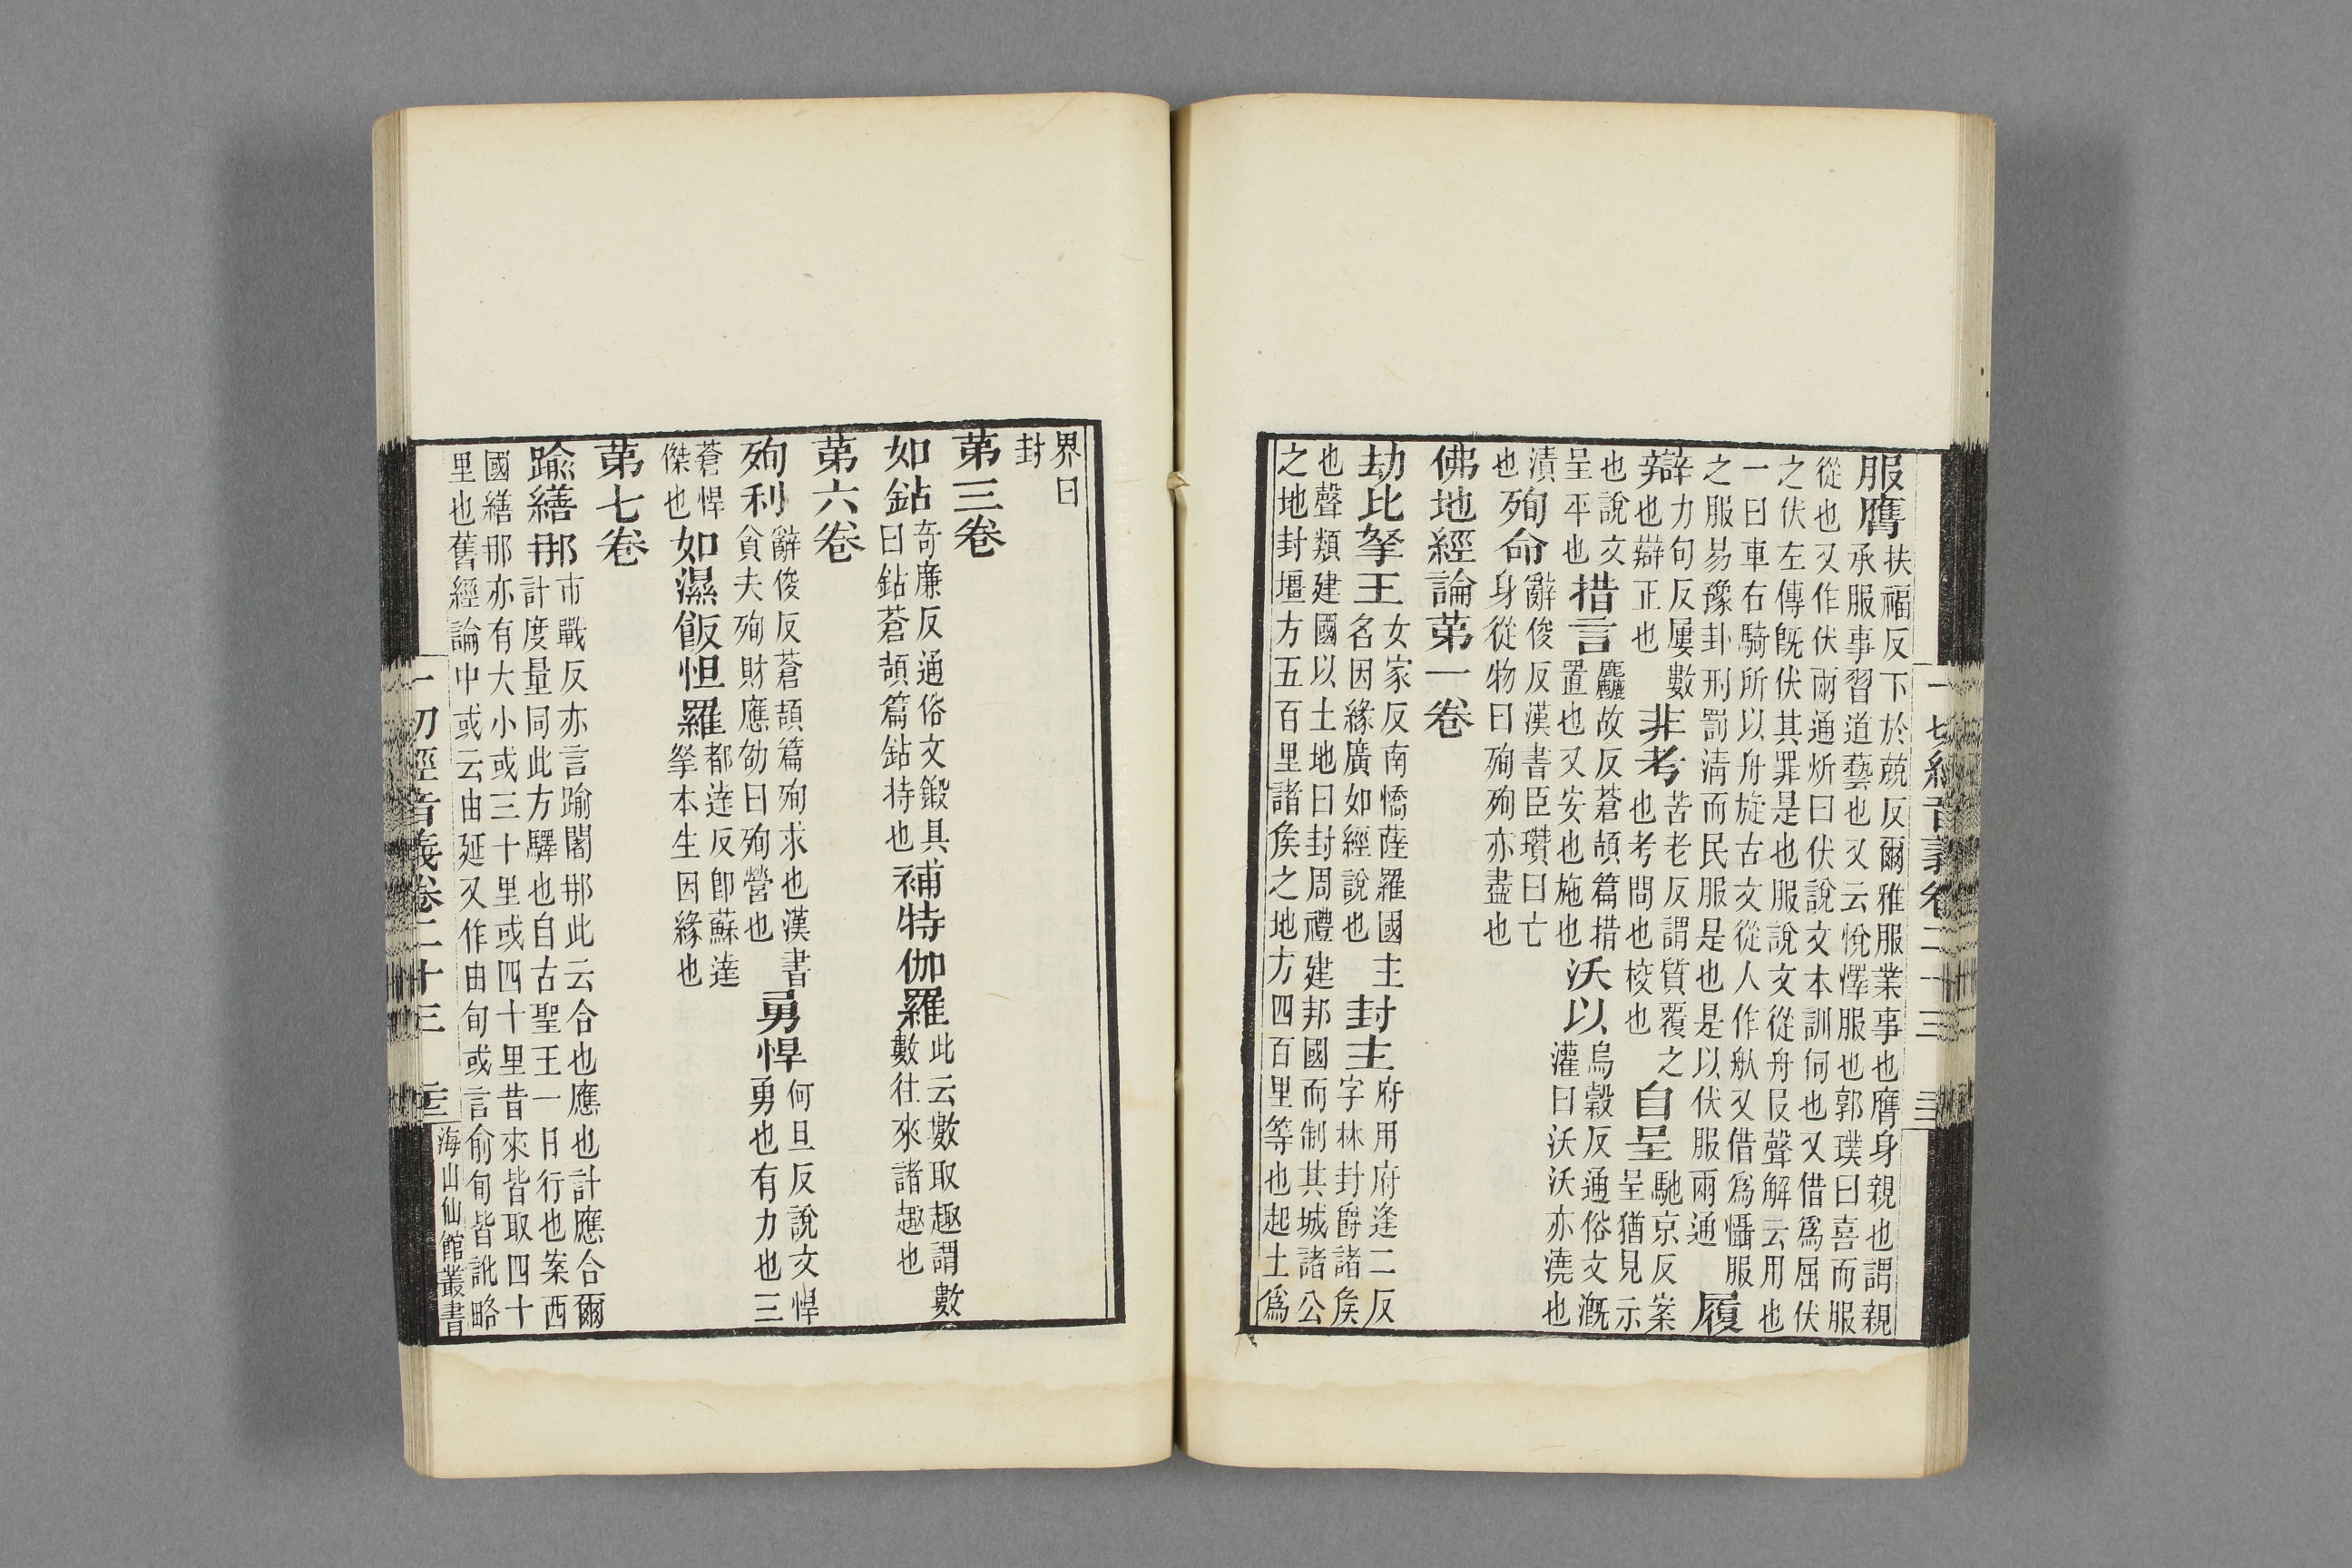 一切經音義卷二十三
服膺扶福反下於兢反爾雅服業事也膺身親也謂親
承服事習道藝也又云悅懌服也郭璞曰喜而服
從也又作伏兩通炘曰伏說文本訓伺也又借爲屈伏
之伏左傳旣伏其罪是也服說文從舟𠬝聲解云用也
一曰車右騎所以舟旋古文從人作舧又借爲懾服
之服易豫卦刑罰淸而民服是也是以伏服兩通
履
辯力句反屢數
也辯正也
非考苦老反謂質覆之
也考問也校也
自呈馳京反案
呈猶見示
也說文
呈平也
措言麤故反蒼頡篇措
置也又安也施也
沃以烏穀反通俗文漑
灌曰沃沃亦澆也
漬
也
殉命辭俊反漢書臣瓚曰亡
身從物曰殉殉亦盡也
佛地經論第一卷
劫比拏王女家反南憍薩羅國主
名因緣廣如經說也
封主府用府逢二反
字林封爵諸矦
也聲類建國以土地曰封周禮建邦國而制其城諸公
之地封壇方五百里諸矦之地方四百里等也起土爲
界曰
封
第三卷
如鉆奇廉反通俗文鍛具
曰鉆蒼頡篇鉆持也
補特伽羅此云數取趣謂數
數往來諸趣也
第六卷
殉利辭俊反蒼頡篇殉求也漢書
貪夫殉財應劭曰殉營也
勇悍何旦反說文悍
勇也有力也三
蒼悍
傑也
如濕飯怛羅都達反卽蘇達
拏本生因緣也
第七卷
踰繕那市戰反亦言踰闍那此云合也應也計應合爾
計度量同此方驛也自古聖王一日行也案西
國繕那亦有大小或三十里或四十里昔來皆取四十
里也舊經論中或云由延又作由旬或言俞旬皆訛略
一切經音義卷二十三
海山仙館叢書